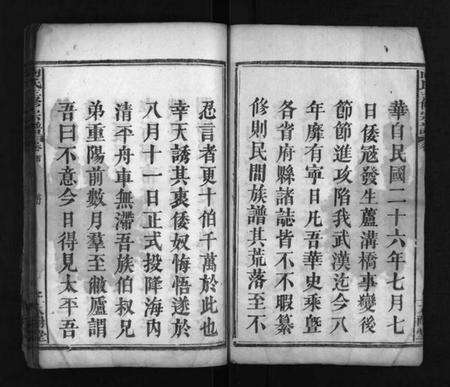 華自民國二十六年七月七
日倭冦發生蘆溝橋事變後
節節進攻陷我武漢迄今八
年靡有寧日凡吾華史乘曁
各省府縣諸誌皆不不暇纂
修則民間族譜其荒落至不
忍言者更十伯千萬於此也
幸天誘其衷倭奴悔悟遂於
八月十一日正式投降海內
清平舟車無滯吾族伯叔兄
弟重陽前數月羣至敝廬謂
吾曰不意今日得見太平吾